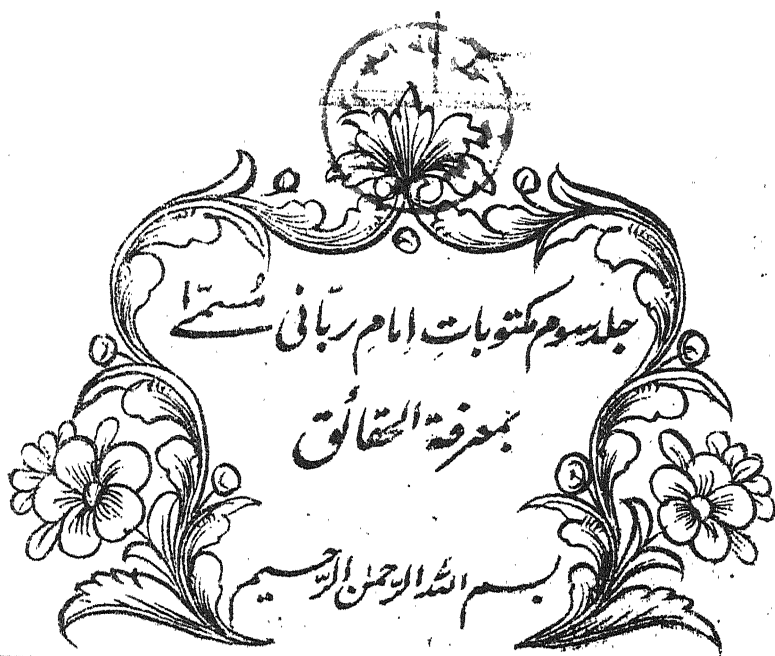 جلد سوم مکتوباتِ اِمامِ ربّانی مُسمّٰے
بمعرفة الحقائق
بسم الله الرحمٰن الرّحیم